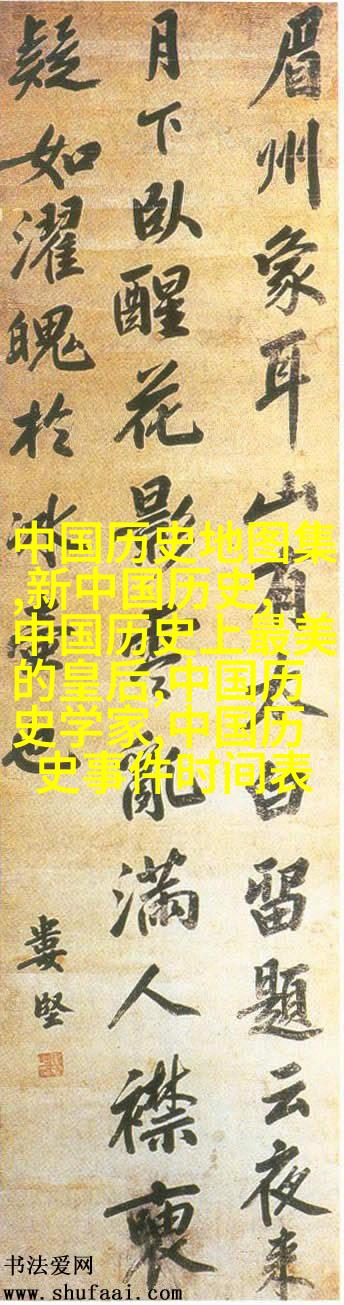 眉州象耳山有太白留題云夜来
月下臥醒花影零亂滿人襟
疑如濯魄於冰壺也
婁堅
中国历史地图集
,新中国历史,
中国历史上最美
的皇后,中国历
史学家,中国历
史事件时间表
书法爱网
www.shufaai.com